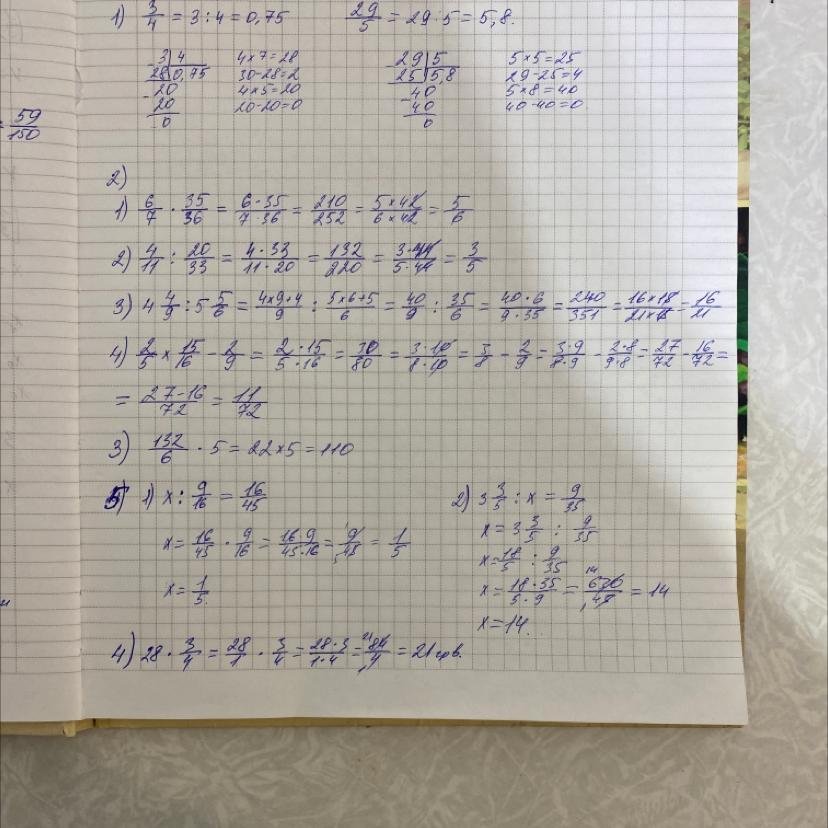 = 59/150
1) 3/4 = 3 : 4 = 0,75   29/5 = 29 : 5 = 5,8.
- 3 | 4   4 × 7 = 28   - 29 | 5   5 × 5 = 25
28 | 0,75   30 - 28 = 2   25 | 5,8   29 - 25 = 4
- 20   4 × 5 = 20   - 40   5 × 8 = 40
20   20 - 20 = 0   40   40 - 40 = 0
0   0
2)
1) 6/7 · 35/36 = 6·35/7·36 = 210/252 = 5×42/6×42 = 5/6
2) 4/11 : 20/33 = 4·33/11·20 = 132/220 = 3·44/5·44 = 3/5
3) 4 4/9 : 5 5/6 = 4×9+4/9 : 5×6+5/6 = 40/9 : 35/6 = 40·6/9·35 = 240/351 = 16×18/21×18 = 16/21
4) 2/5 × 15/16 - 2/9 = 2·15/5·16 = 30/80 = 3·10/8·10 = 3/8 - 2/9 = 3·9/8·9 - 2·8/9·8 = 27/72 - 16/72 =
= 27-16/72 = 11/72
3) 132/6 · 5 = 22×5 = 110
5) 1) x : 9/16 = 16/45   2) 3 3/5 : x = 9/35
x = 16/45 · 9/16 = 16·9/45·16 = 9/45 = 1/5   x = 3 3/5 : 9/35
x = 18/5 : 9/35
x = 1/5.   x = 18·35/5·9 = 630/45 = 14
x = 14.
4) 28 · 3/4 = 28/1 · 3/4 = 28·3/1·4 = 84/4 = 21 грв.